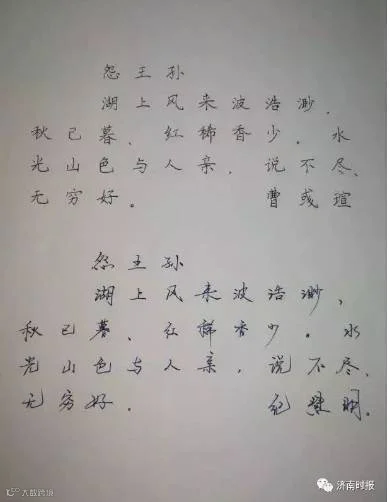 怨王孙
湖上风来波浩渺，
秋已暮、红稀香少。水
光山色与人亲，说不尽、
无穷好。 曹彧瑄
怨王孙
湖上风来波浩渺，
秋已暮、红稀香少。水
光山色与人亲，说不尽、
无穷好。 纪慧明。
大数跨境
济南时报